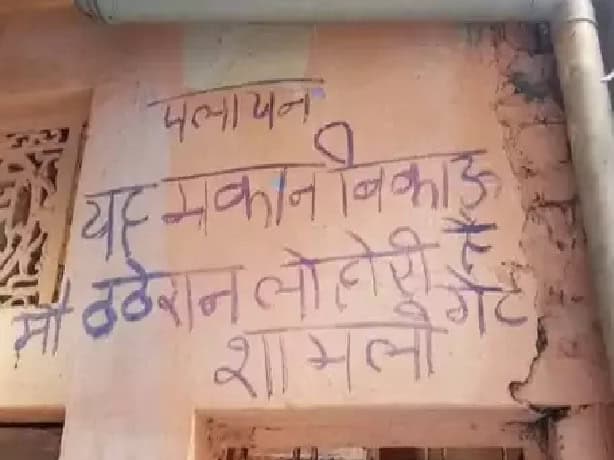 पलायन
यह मकान बिकाऊ
मौ ठठेरान लोहोरी गेट है
शामली